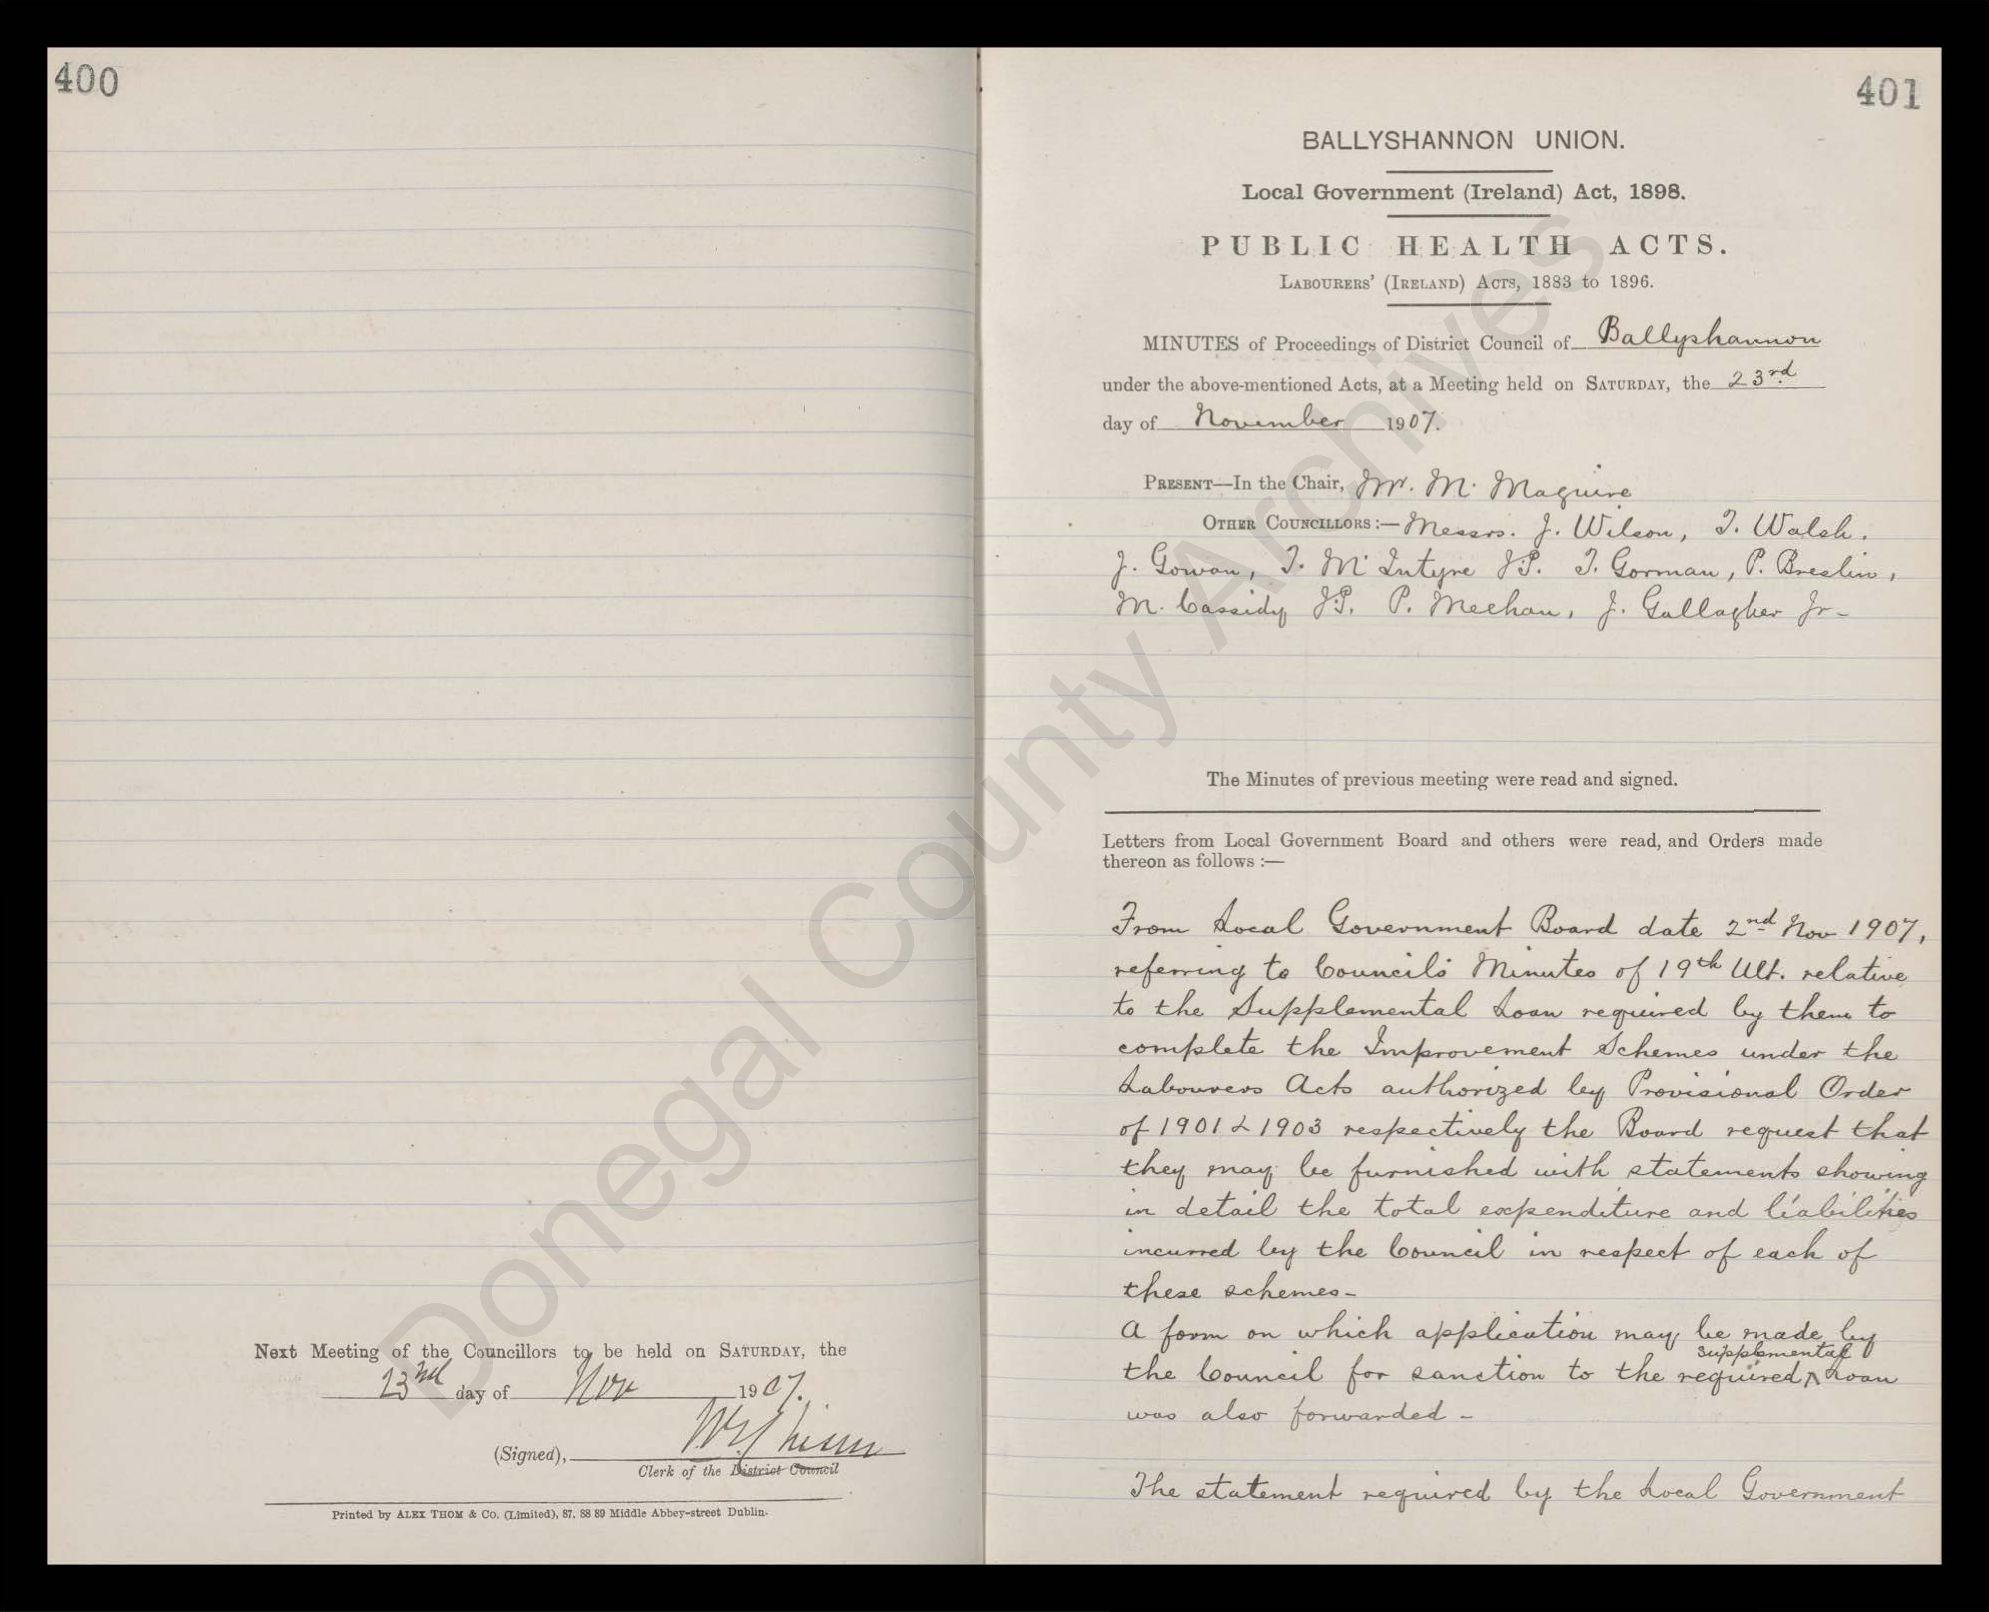 400
Next Meeting of the Councillors to be held on SATURDAY, the
23rd day of Nov 1907.
(Signed),
Clerk of the District Council
Printed by ALEX THOM & Co. (Limited), 87, 88 89 Middle Abbey-street Dublin.
401
BALLYSHANNON UNION.
Local Government (Ireland) Act, 1898.
PUBLIC HEALTH ACTS.
LABOURERS' (IRELAND) ACTS, 1883 to 1896.
MINUTES of Proceedings of District Council of Ballyshannon
under the above-mentioned Acts, at a Meeting held on SATURDAY, the 23rd
day of November 1907.
PRESENT—In the Chair, Mr. M. Maguire
OTHER COUNCILLORS:— Messrs. J. Wilson, T. Walsh.
J. Gowan, T. McIntyre J.P. T. Gorman, P. Breslin,
M. Cassidy J.P. P. Meehan, J. Gallagher Jr-
The Minutes of previous meeting were read and signed.
Letters from Local Government Board and others were read, and Orders made
thereon as follows :—
From Local Government Board date 2nd Nov 1907,
referring to Council's Minutes of 19th Ult. relative
to the Supplemental Loan required by them to
complete the Improvement Schemes under the
Labourers Acts authorized by Provisional Order
of 1901 & 1903 respectively the Board request that
they may be furnished with statements showing
in detail the total expenditure and liabilities
incurred by the Council in respect of each of
these schemes-
A form on which application may be made by
supplemental
the Council for sanction to the required ^ Loan
was also forwarded -
The statement required by the Local Government
Donegal County Archives